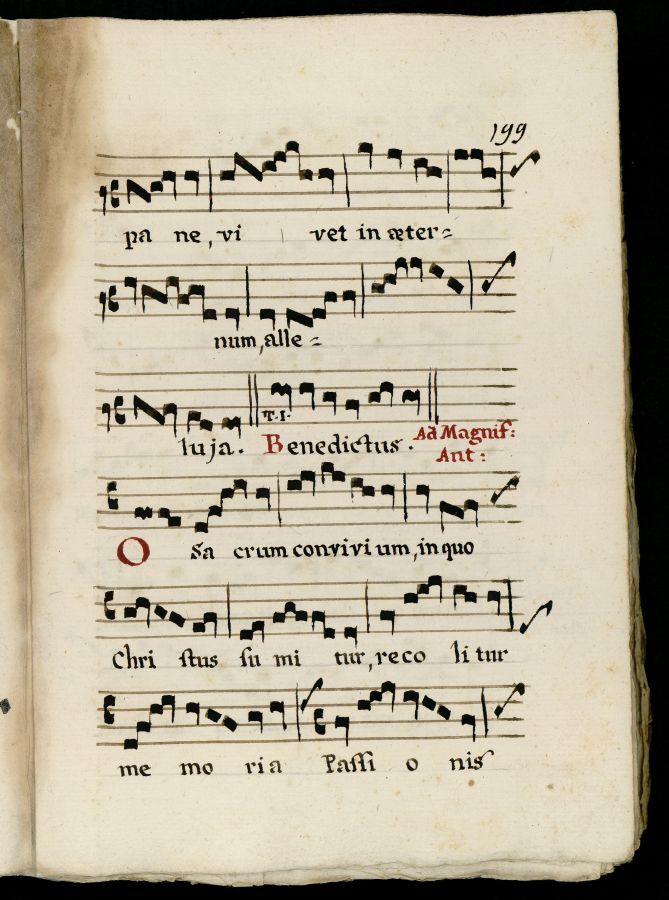 199
pa ne, vi vet in æter=
num, alle =
T. I.
luja. Benedictus. Ad Magnif:
Ant:
O Sa crum convivi um, in quo
Chri ſtus ſu mi tur, reco li tur
me mo ria Paſſi o nis